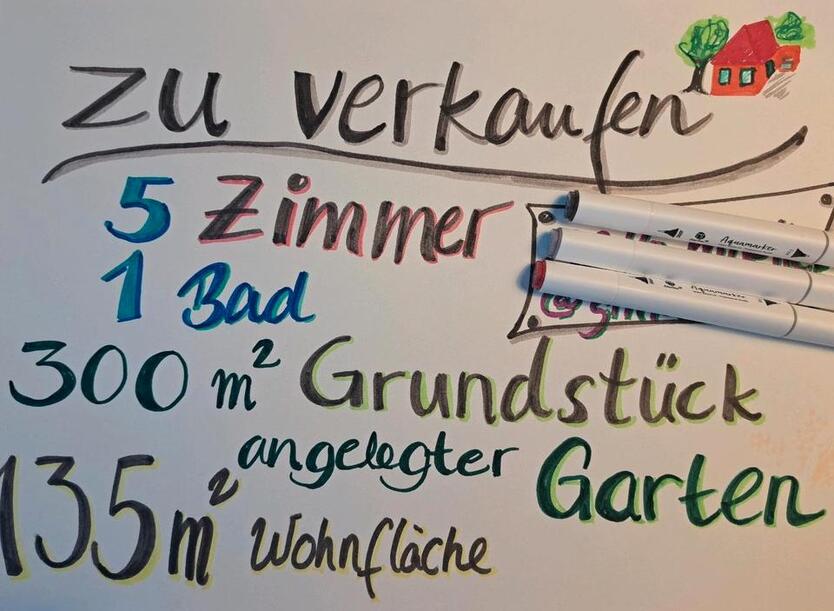 zu verkaufen
5 Zimmer
1 Bad
300 m² Grundstück
angelegter Garten
135 m² Wohnfläche
Aquamarker
Aquamarker